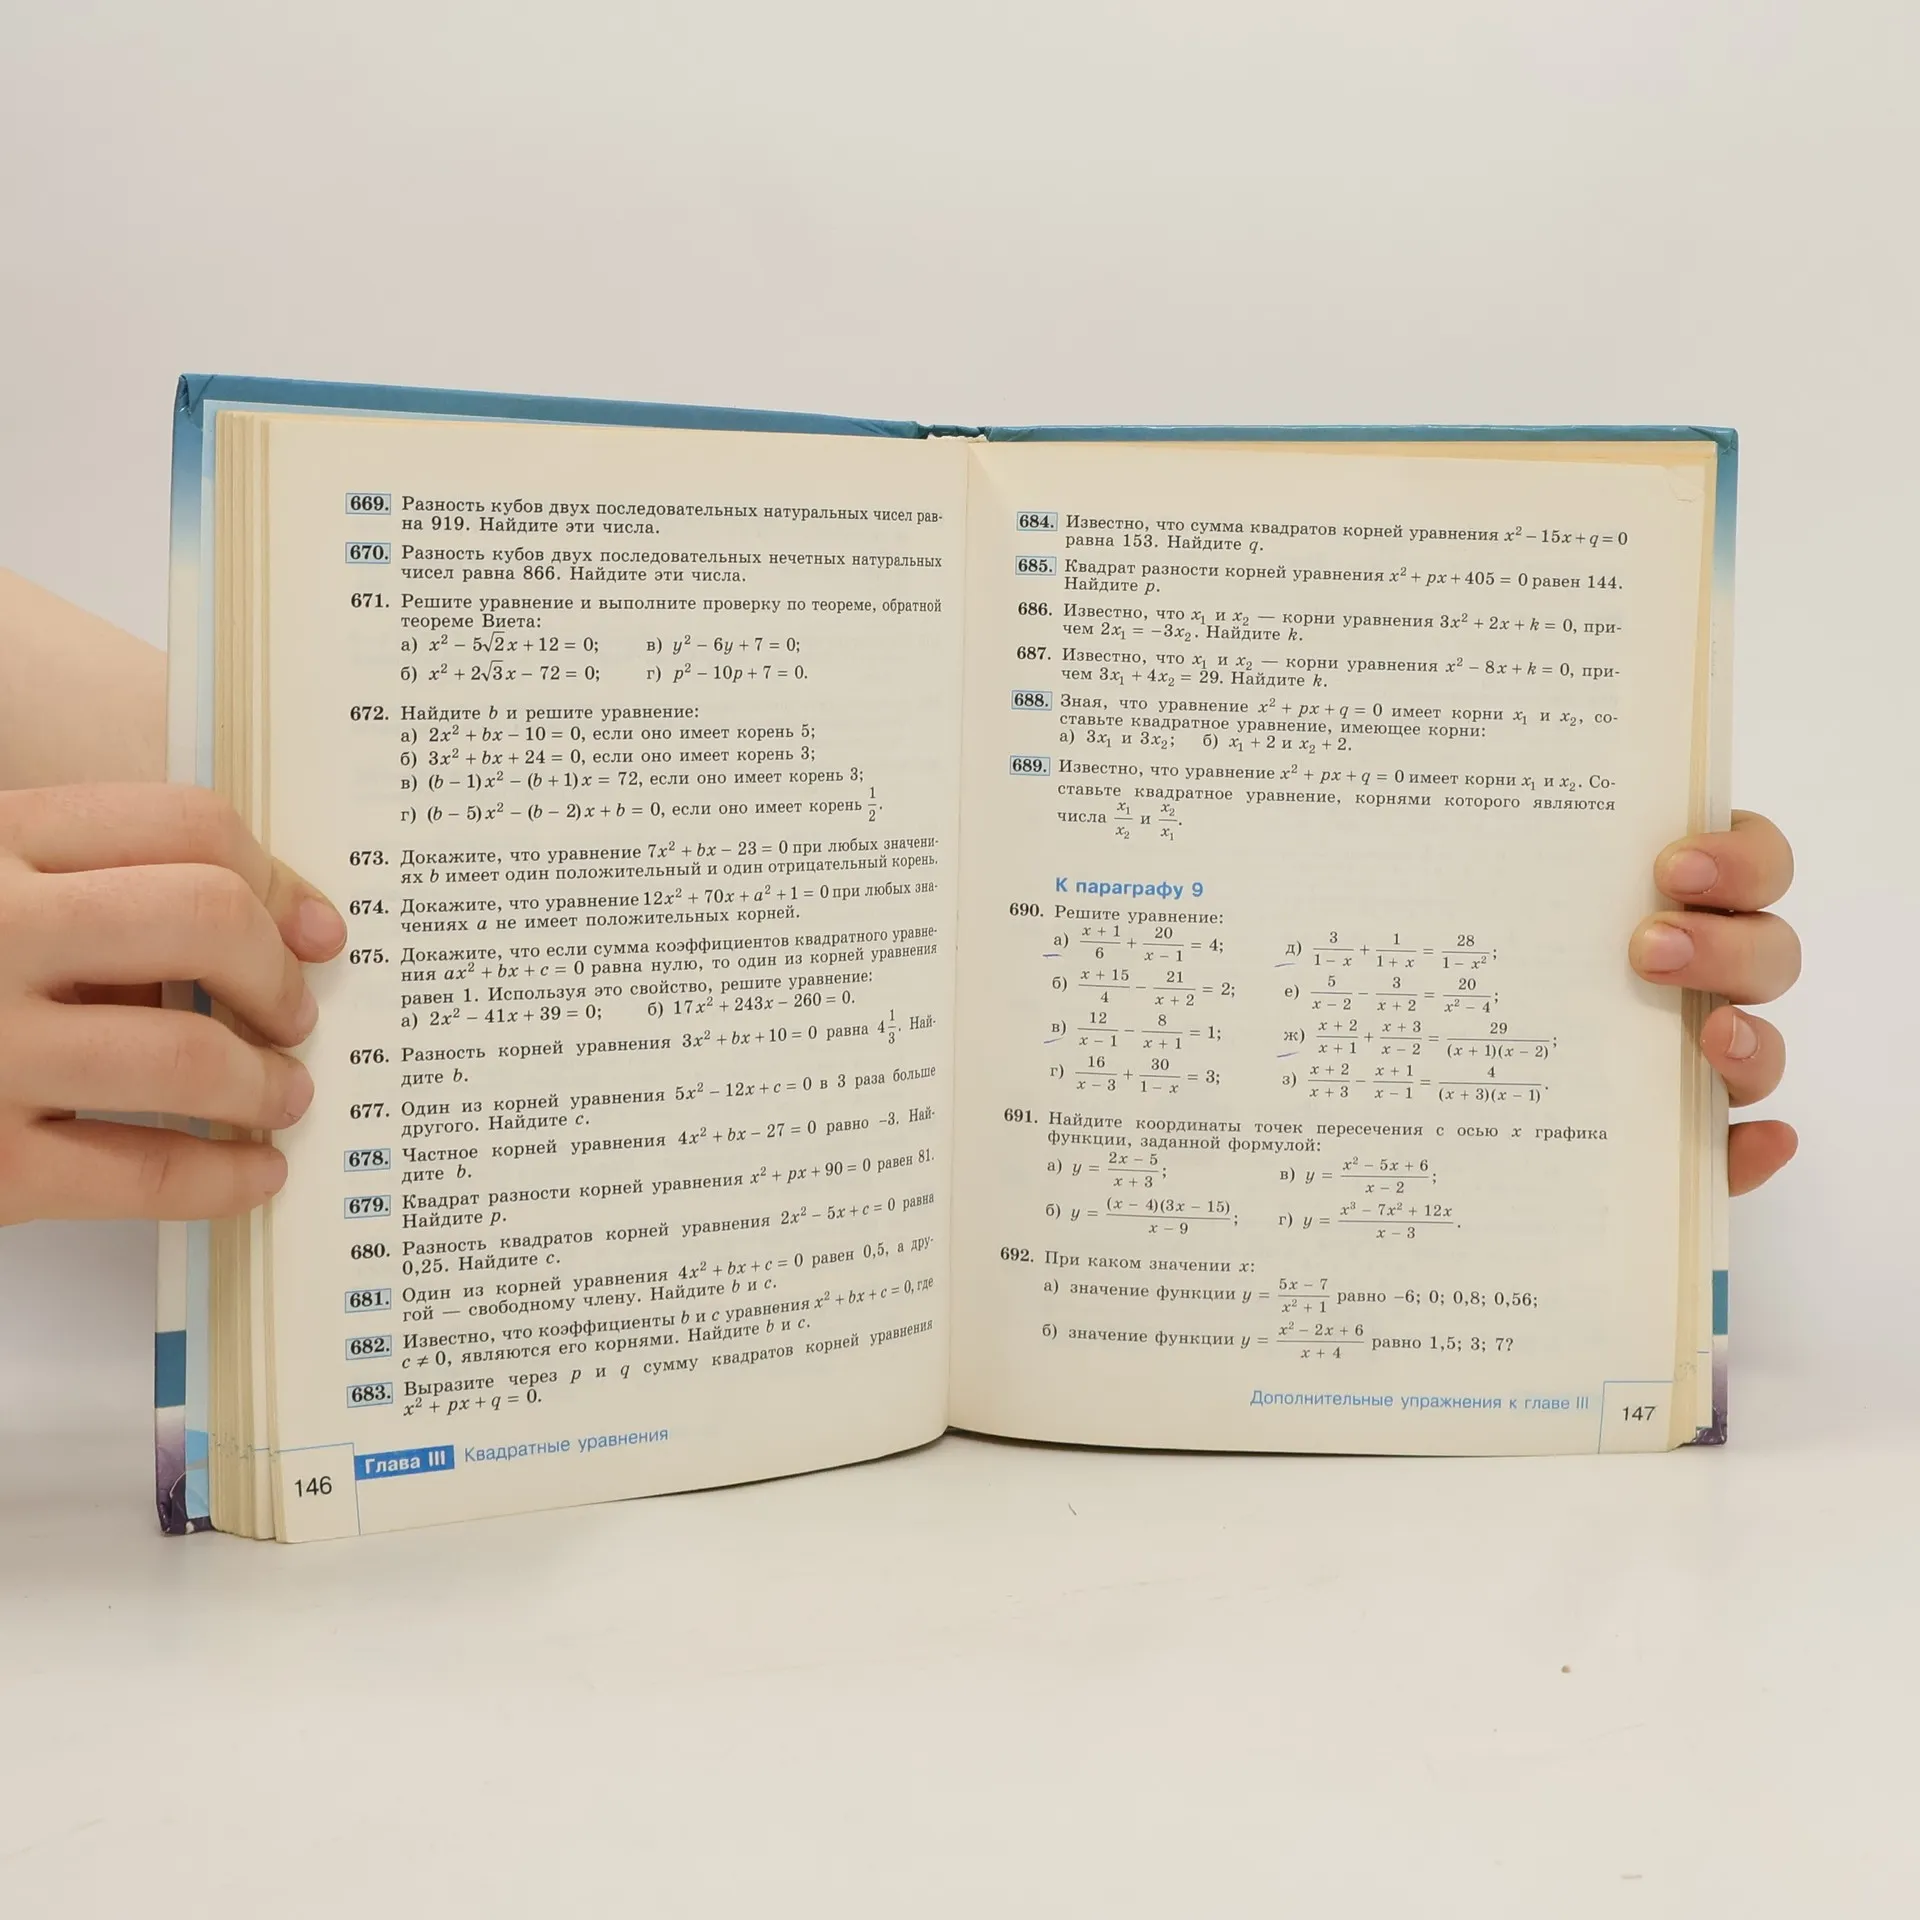 669. Разность кубов двух последовательных натуральных чисел рав-
на 919. Найдите эти числа.
670. Разность кубов двух последовательных нечетных натуральных
чисел равна 866. Найдите эти числа.
671. Решите уравнение и выполните проверку по теореме, обратной
теореме Виета:
а) x² − 5√2x + 12 = 0; в) y² − 6y + 7 = 0;
б) x² + 2√3x − 72 = 0; г) p² − 10p + 7 = 0.
672. Найдите b и решите уравнение:
а) 2x² + bx − 10 = 0, если оно имеет корень 5;
б) 3x² + bx + 24 = 0, если оно имеет корень 3;
в) (b − 1)x² − (b + 1)x = 72, если оно имеет корень 3;
г) (b − 5)x² − (b − 2)x + b = 0, если оно имеет корень 1/2.
673. Докажите, что уравнение 7x² + bx − 23 = 0 при любых значени-
ях b имеет один положительный и один отрицательный корень.
674. Докажите, что уравнение 12x² + 70x + a² + 1 = 0 при любых зна-
чениях a не имеет положительных корней.
675. Докажите, что если сумма коэффициентов квадратного уравне-
ния ax² + bx + c = 0 равна нулю, то один из корней уравнения
равен 1. Используя это свойство, решите уравнение:
а) 2x² − 41x + 39 = 0; б) 17x² + 243x − 260 = 0.
676. Разность корней уравнения 3x² + bx + 10 = 0 равна 4 1/3. Най-
дите b.
677. Один из корней уравнения 5x² − 12x + c = 0 в 3 раза больше
другого. Найдите c.
678. Частное корней уравнения 4x² + bx − 27 = 0 равно −3. Най-
дите b.
679. Квадрат разности корней уравнения x² + px + 90 = 0 равен 81.
Найдите p.
680. Разность квадратов корней уравнения 2x² − 5x + c = 0 равна
0,25. Найдите c.
681. Один из корней уравнения 4x² + bx + c = 0 равен 0,5, а дру-
гой — свободному члену. Найдите b и c.
682. Известно, что коэффициенты b и c уравнения x² + bx + c = 0, где
c ≠ 0, являются его корнями. Найдите b и c.
683. Выразите через p и q сумму квадратов корней уравнения
x² + px + q = 0.
146 Глава III Квадратные уравнения
684. Известно, что сумма квадратов корней уравнения x² − 15x + q = 0
равна 153. Найдите q.
685. Квадрат разности корней уравнения x² + px + 405 = 0 равен 144.
Найдите p.
686. Известно, что x₁ и x₂ — корни уравнения 3x² + 2x + k = 0, при-
чем 2x₁ = −3x₂. Найдите k.
687. Известно, что x₁ и x₂ — корни уравнения x² − 8x + k = 0, при-
чем 3x₁ + 4x₂ = 29. Найдите k.
688. Зная, что уравнение x² + px + q = 0 имеет корни x₁ и x₂, со-
ставьте квадратное уравнение, имеющее корни:
а) 3x₁ и 3x₂; б) x₁ + 2 и x₂ + 2.
689. Известно, что уравнение x² + px + q = 0 имеет корни x₁ и x₂. Со-
ставьте квадратное уравнение, корнями которого являются
числа x₁/x₂ и x₂/x₁.
К параграфу 9
690. Решите уравнение:
а) (x + 1)/6 + 20/(x − 1) = 4; д) 3/(1 − x) + 1/(1 + x) = 28/(1 − x²);
б) (x + 15)/4 − 21/(x + 2) = 2; е) 5/(x − 2) − 3/(x + 2) = 20/(x² − 4);
в) 12/(x − 1) − 8/(x + 1) = 1; ж) (x + 2)/(x + 1) + (x + 3)/(x − 2) = 29/((x + 1)(x − 2));
г) 16/(x − 3) + 30/(1 − x) = 3; з) (x + 2)/(x + 3) − (x + 1)/(x − 1) = 4/((x + 3)(x − 1)).
691. Найдите координаты точек пересечения с осью x графика
функции, заданной формулой:
а) y = (2x − 5)/(x + 3); в) y = (x² − 5x + 6)/(x − 2);
б) y = (x − 4)(3x − 15)/(x − 9); г) y = (x³ − 7x² + 12x)/(x − 3).
692. При каком значении x:
а) значение функции y = (5x − 7)/(x² + 1) равно −6; 0; 0,8; 0,56;
б) значение функции y = (x² − 2x + 6)/(x + 4) равно 1,5; 3; 7?
Дополнительные упражнения к главе III 147